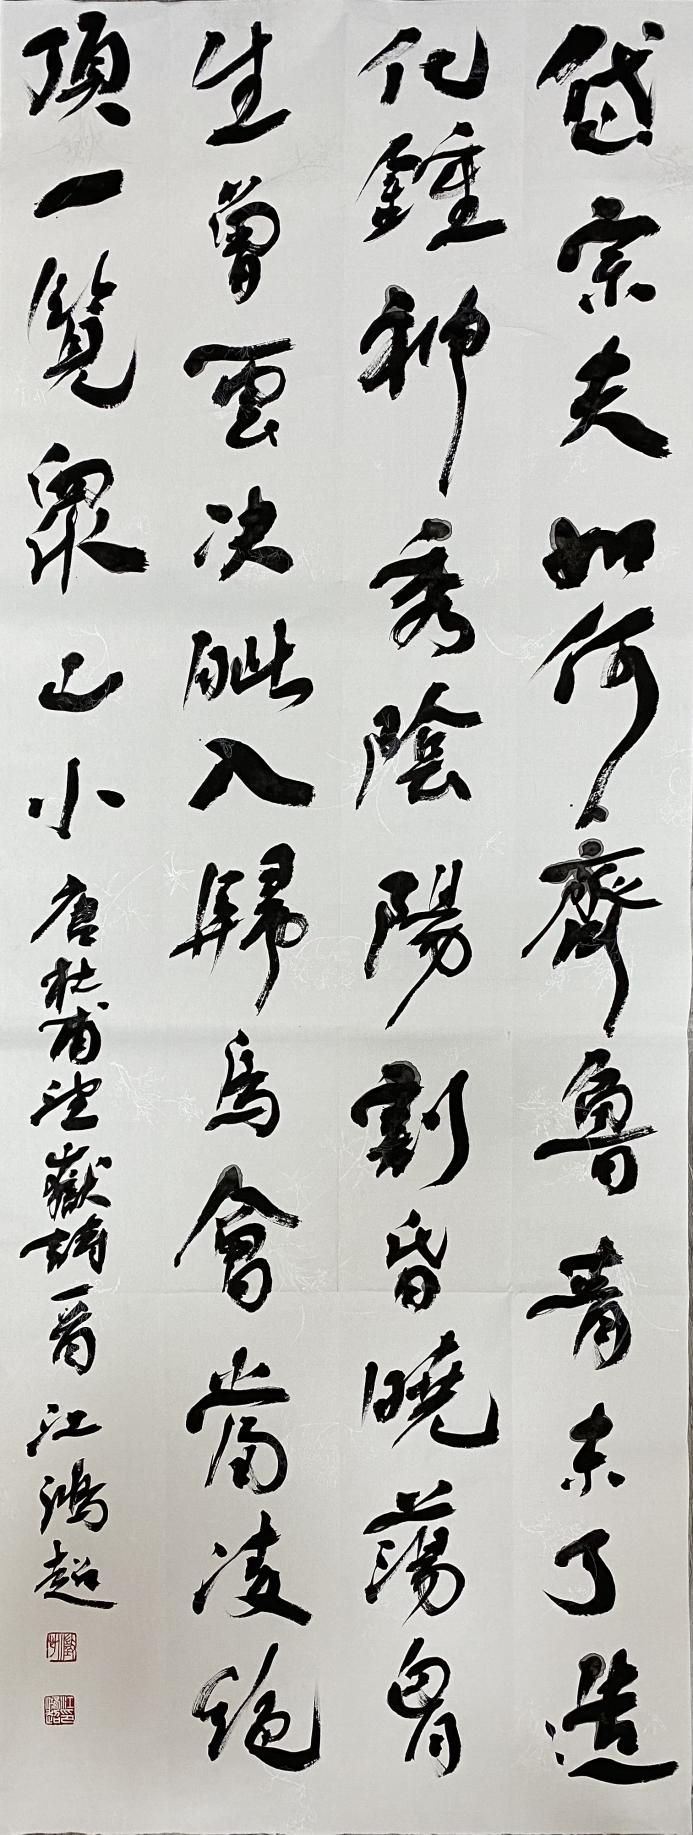 岱宗夫如何齊魯青未了造
化鍾神秀陰陽割昏曉蕩胷
生曾雲決眦入歸鳥會當凌絕
頂一覽衆山小唐杜甫望嶽詩一首江鴻超